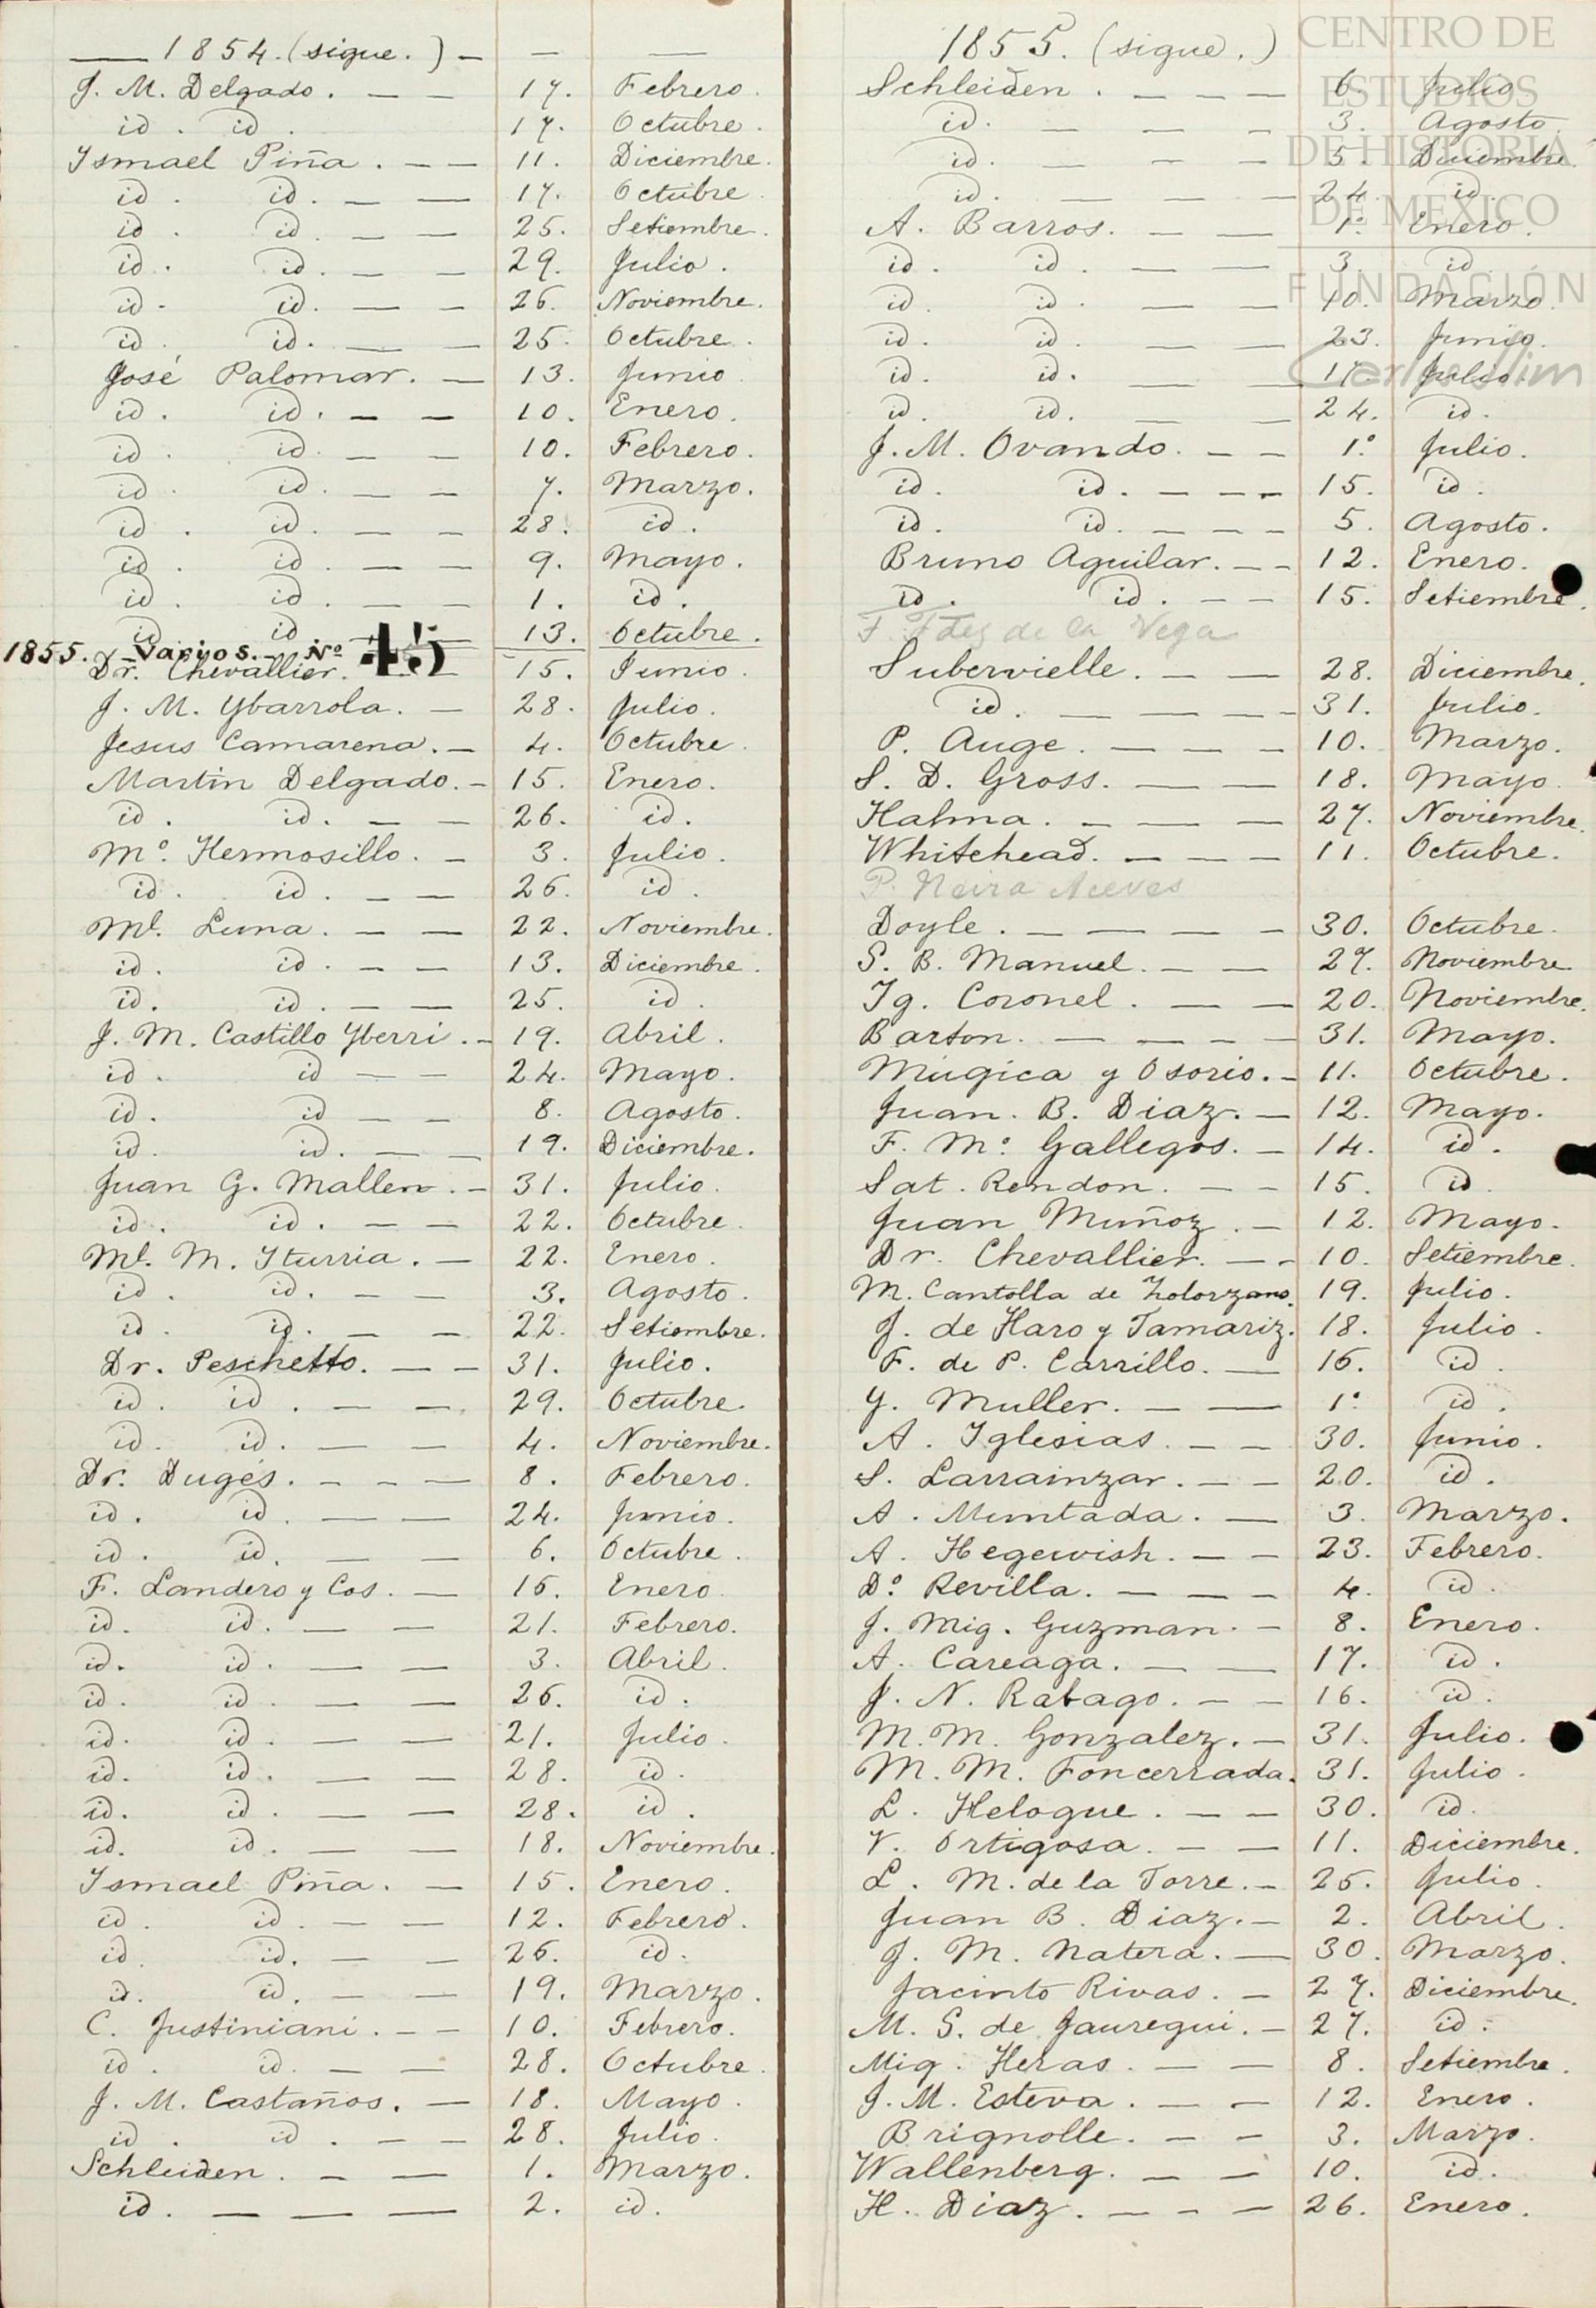 1854. (sigue.)
J. M. Delgado. 17. Febrero.
id. id. 17. Octubre.
Ismael Piña. 11. Diciembre.
id. id. 17. Octubre
id. id. 25. Setiembre.
id. id. 29. Julio.
id. id. 26. Noviembre.
id. id. 25. Octubre.
José Palomar. 13. Junio
id. id. 10. Enero.
id. id. 10. Febrero.
id. id. 7. Marzo.
id. id. 28. id.
id. id. 9. Mayo.
id. id. 1. id.
id id 13. Octubre.
1855. Varios. Nº 45
Dr. Chevallier. 15. Junio.
J. M. Ybarrola. 28. Julio.
Jesus Camarena. 4. Octubre.
Martin Delgado. 15. Enero.
id. id. 26. id.
Mº. Hermosillo. 3. Julio.
id. id. 26. id.
Ml. Luna. 22. Noviembre.
id. id. 13. Diciembre.
id. id. 25. id.
J. M. Castillo Yberri. 19. Abril.
id. id 24. Mayo.
id. id 8. Agosto.
id. id. 19. Diciembre.
Juan G. Mallen. 31. Julio.
id. id. 22. Octubre.
Ml. M. Iturria. 22. Enero.
id. id. 3. Agosto.
id. id. 22. Setiembre.
Dr. Peschetto. 31. Julio.
id. id. 29. Octubre.
id. id. 4. Noviembre.
Dr. Dugés. 8. Febrero.
id. id. 24. Junio.
id. id. 6. Octubre.
F. Landero y Cos. 16. Enero.
id. id. 21. Febrero.
id. id. 3. Abril.
id. id. 26. id.
id. id. 21. Julio.
id. id. 28. id.
id. id. 28. id.
id. id. 18. Noviembre.
Ismael Piña. 15. Enero.
id. id. 12. Febrero.
id. id. 26. id.
id. id. 19. Marzo.
C. Justiniani. 10. Febrero.
id. id. 28. Octubre.
J. M. Castaños. 18. Mayo.
id. id. 28. Julio.
Schleiden. 1. Marzo.
id. 2. id.
1855. (sigue.)
Schleiden. 6 Julio
id. 3. Agosto.
id. 5. Diciembre.
id. 24. id.
A. Barros. 1º Enero.
id. id. 3. id
id. id. 10. Marzo.
id. id. 23. Junio.
id. id. 17. Julio.
id. id. 24. id.
J. M. Ovando. 1º Julio.
id. id. 15. id.
id. id. 5. Agosto.
Bruno Aguilar. 12. Enero.
id. id. 15. Setiembre.
F. Fdez de la Vega
Subervielle. 28. Diciembre.
id. 31. Julio.
P. Auge. 10. Marzo.
S. D. Gross. 18. Mayo.
Halma. 27. Noviembre.
Whitehead. 11. Octubre.
P. Neira Aceves
Doyle. 30. Octubre.
S. B. Manuel. 27. Noviembre.
Ig. Coronel. 20. Noviembre.
Barton. 31. Mayo.
Múgica y Osorio. 11. Octubre.
Juan. B. Diaz. 12. Mayo.
F. Mº. Gallegos. 14. id.
Sat. Rendon. 15. id.
Juan Muñoz. 12. Mayo.
Dr. Chevallier. 10. Setiembre.
M. Cantolla de Zolorzano. 19. Julio.
J. de Haro y Tamariz. 18. Julio.
F. de P. Carrillo. 16. id.
Y. Muller. 1º id.
A. Iglesias. 30. Junio.
S. Larrainzar. 20. id.
A. Muntada. 3. Marzo.
A. Hegewish. 23. Febrero.
Dº. Revilla. 4. id.
J. Mig. Guzman. 8. Enero.
A. Careaga. 17. id.
J. N. Rabago. 16. id.
M. M. Gonzalez. 31. Julio.
M. M. Foncerrada. 31. Julio.
L. Helogue. 30. id.
V. Ortigosa. 11. Diciembre.
L. M. de la Torre. 26. Julio.
Juan B. Diaz. 2. Abril.
J. M. Natera. 30. Marzo.
Jacinto Rivas. 27. Diciembre.
M. S. de Jauregui. 27. id.
Mig. Heras. 8. Setiembre.
J. M. Esteva. 12. Enero.
Brignolle. 3. Marzo.
Wallenberg. 10. id.
H. Diaz. 26. Enero.
CENTRO DE
ESTUDIOS
DE HISTORIA
DE MEXICO
FUNDACIÓN
Carlos Slim